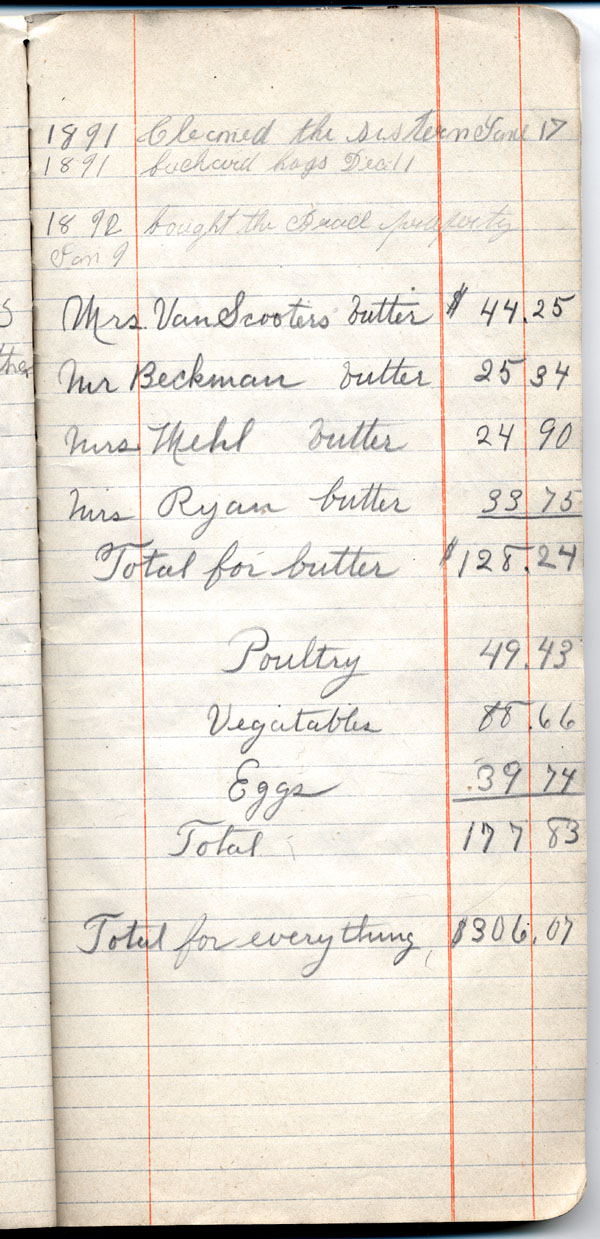 1891 Cleaned the sistern June 17
1891 buchard hogs Dec 11
1892 bought the property
Jan 9
Mrs. VanScooters butter $ 44.25
Mr Beckman butter 25 34
Mrs Mehl butter 24 90
Mrs Ryan butter 33 75
Total for butter $128.24
Poultry 49.43
Vegatables 88.66
Eggs 39 74
Total 177 83
Total for everything, $306.07